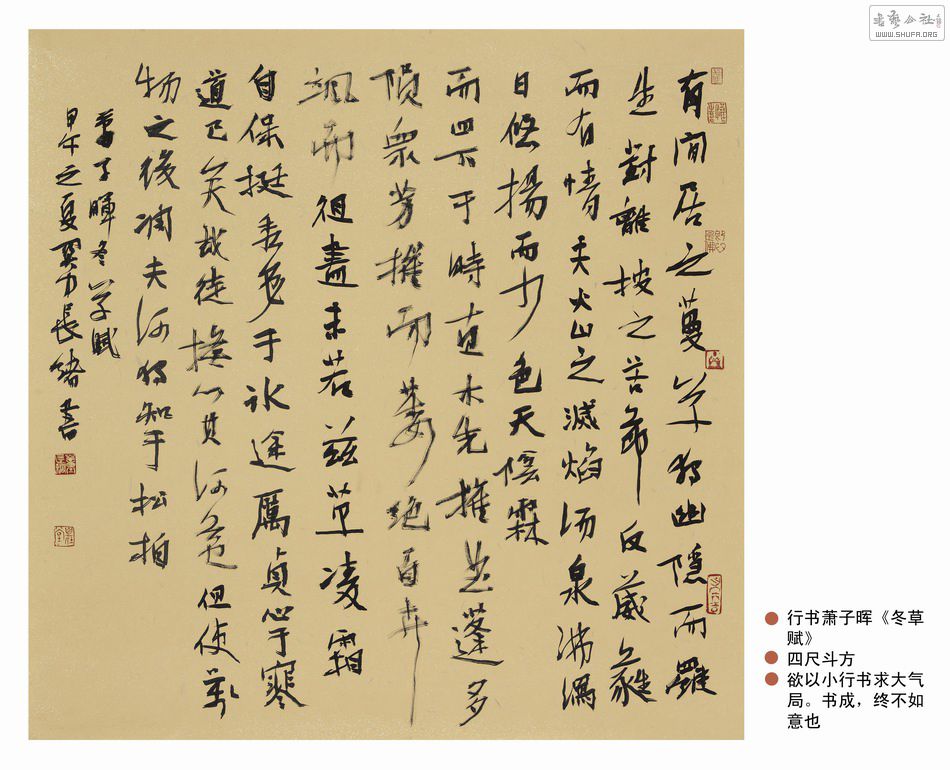 书艺公社
WWW.SHUFA.ORG
有閒居之蔓草獨幽隱而羅
生對離披之苦節反葳蕤
而有情夫火山之滅焰湯泉沸涸
日悠揚而少色天陰霖
而四下于時直木先摧曲蓬多
隕眾芳摧而萎絕百卉
颯而徂盡未若茲草凌霜
自保挺秀色于冰途厲貞心于寒
道已矣哉徒撫心其何益但使萬
物之後凋夫何獨知于松柏
蕭子暉冬草賦
甲午之夏長緒書
行书萧子晖《冬草
赋》
四尺斗方
欲以小行书求大气
局。书成，终不如
意也